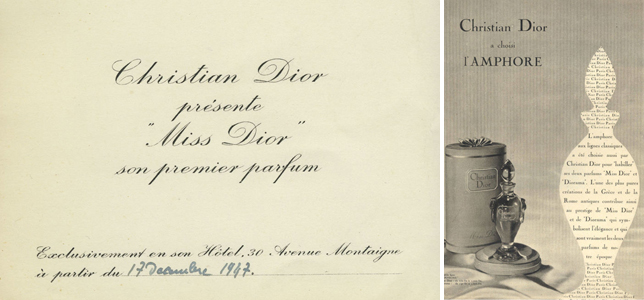 Christian Dior
présente
"Miss Dior"
son premier parfum
Exclusivement en son Hôtel, 30 Avenue Montaigne
à partir du 17 Décembre 1947.
Christian Dior
a choisi
l'AMPHORE
Christian
Dior
L'amphore
aux lignes classiques
a été choisie aussi par
Christian Dior pour habiller
ses deux parfums 'Miss Dior' et
'Diorama'. L'une des plus pures
créations de la Grèce et de la
Rome antiques contribue ainsi
au prestige de 'Miss Dior'
et de 'Diorama' qui sym-
bolisent l'élégance et qui
sont vraiment les deux
parfums de no-
tre époque